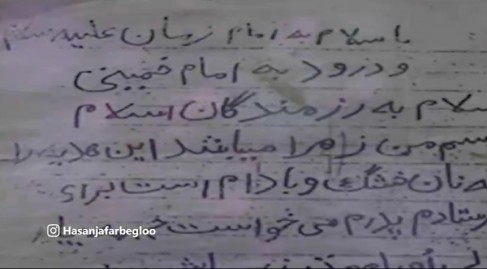 با سلام به امام زمان علیه سلام
و درود به امام خمینی
سلام به رزمندگان اسلام
سم من زهرا میباشد این هدیه را
ه نان خشک و بادام است برای
رستادم پدرم می‌خواست
Hasanjafarbegloo